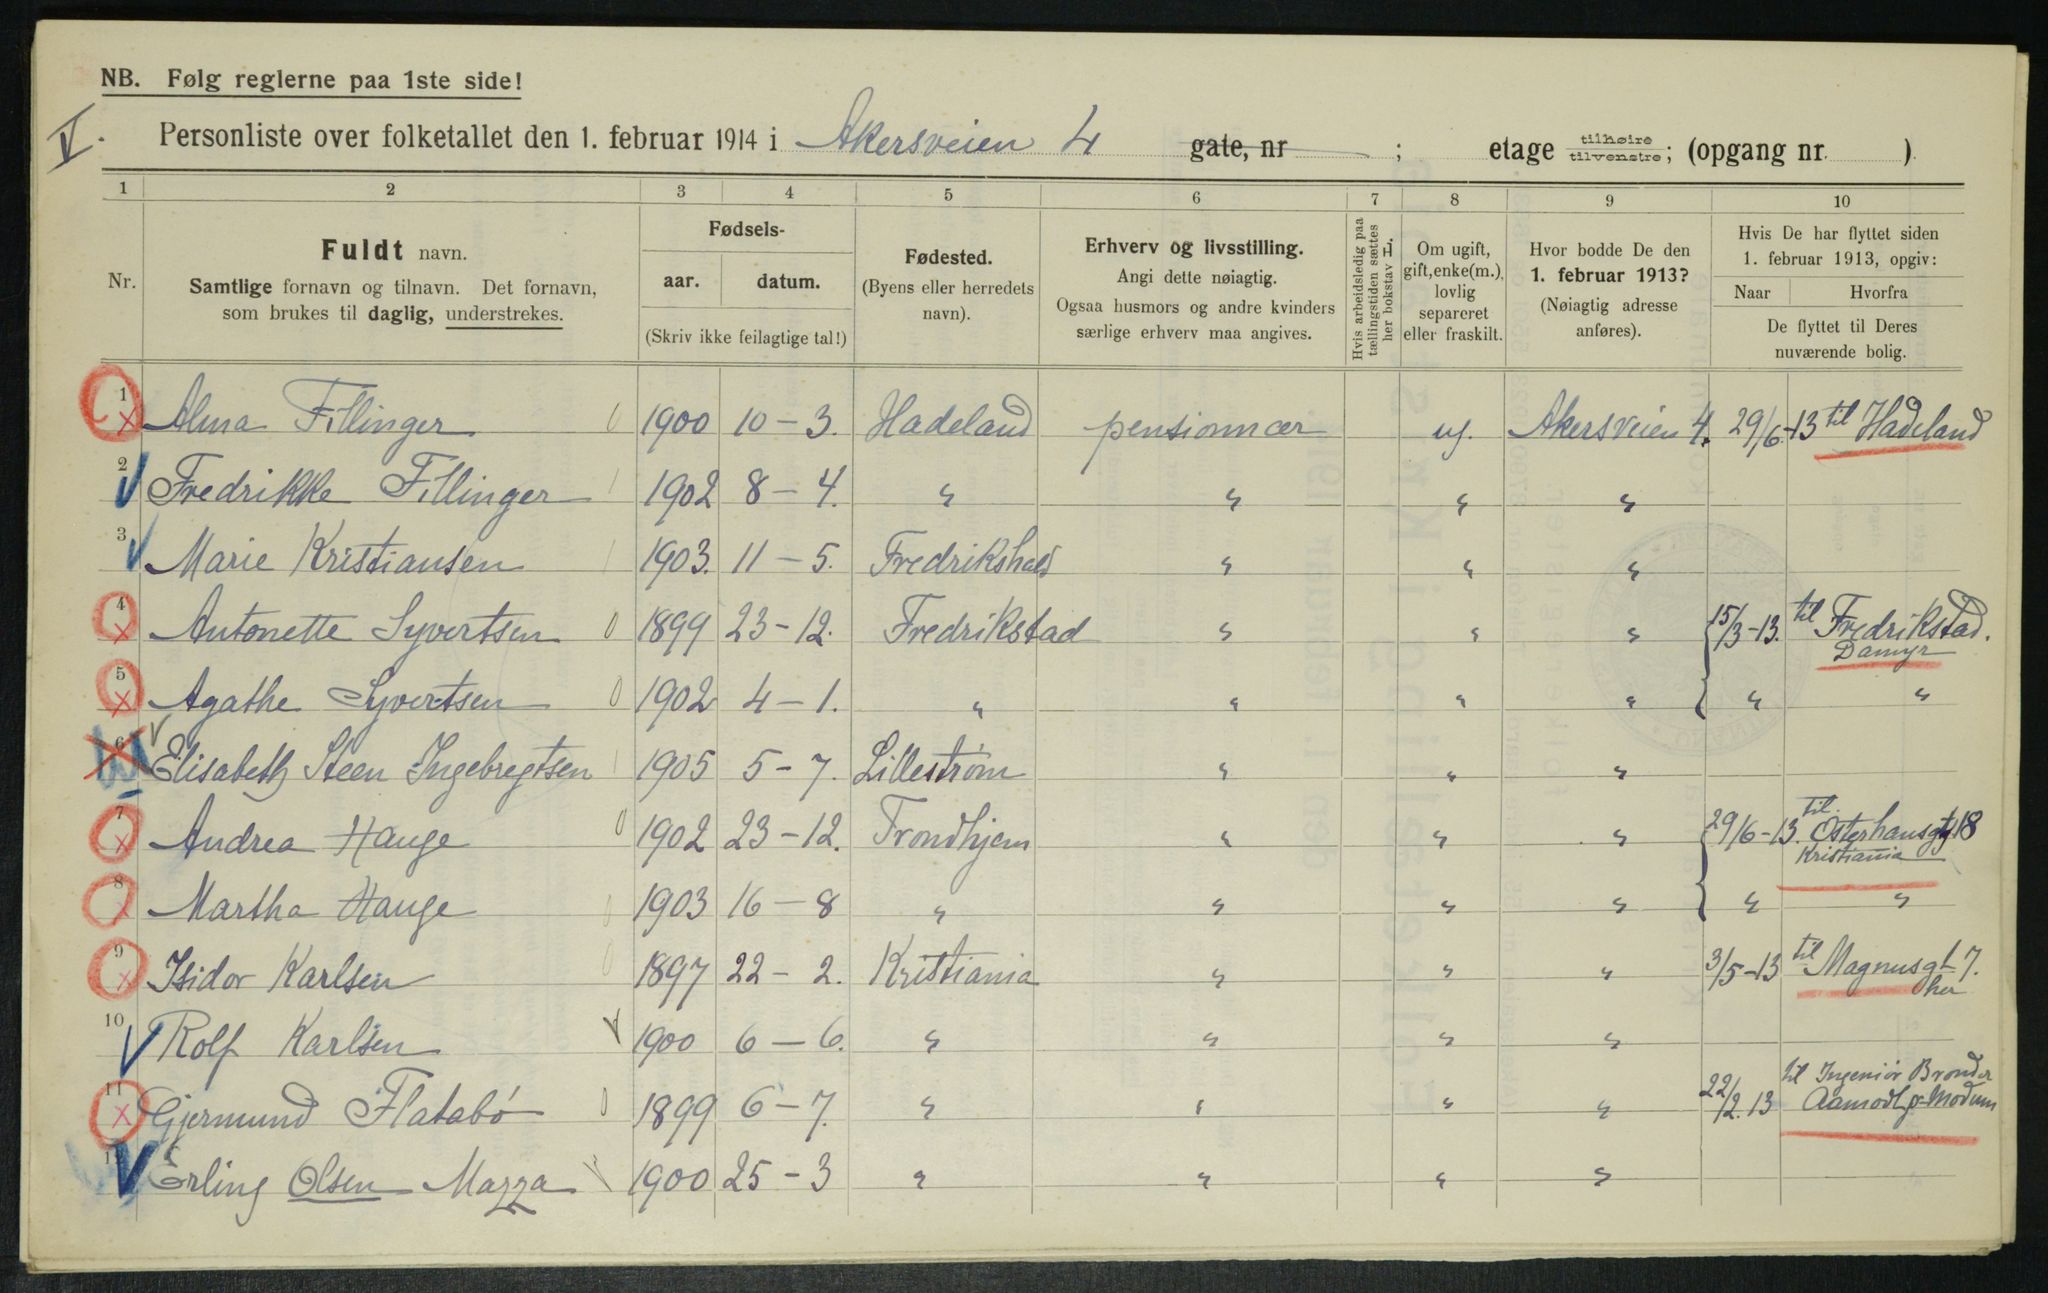 NB. Følg reglerne paa 1ste side!
V.
Personliste over folketallet den 1. februar 1914 i Akersveien 4 gate, nr ; etage tilhøire tilvenstre; (opgang nr. )
1 2 3 4 5 6 7 8 9 10
Nr.
Fuldt navn.
Samtlige fornavn og tilnavn. Det fornavn,
som brukes til daglig, understrekes.
Fødsels-
aar. datum.
(Skriv ikke feilagtige tal!)
Fødested.
(Byens eller herredets
navn).
Erhverv og livsstilling.
Angi dette nøiagtig.
Ogsaa husmors og andre kvinders
særlige erhverv maa angives.
Hvis arbeidsledig paa
tællingstiden sættes
her bokstav
Om ugift,
gift, enke(m.),
lovlig
separeret
eller fraskilt.
Hvor bodde De den
1. februar 1913?
(Nøiagtig adresse
anføres).
Hvis De har flyttet siden
1. februar 1913, opgiv:
Naar Hvorfra
De flyttet til Deres
nuværende bolig.
1 Alma Fillinger 0 1900 10-3. Hadeland pensionnær ug. Akersveien 4. 29/6-13 til Hadeland
2 Fredrikke Fillinger 1 1902 8-4. " " " "
3 Marie Kristiansen 1 1903. 11-5. Fredrikshald " " "
4 Antonette Syvertsen 0 1899 23-12. Fredrikstad " " " 15/3-13. til Fredrikstad.
Damyr
5 Agathe Syvertsen 0 1902 4-1. " " " " " "
6 Elisabeth Steen Ingebregtsen 1 1905 5-7. Lillestrøm " " "
7 Andrea Hauge 0 1902 23-12. Trondhjem " " " 29/6-13. til Osterhausgt 18
Kristiania
8 Martha Hauge 0 1903 16-8 " " " " " "
9 Isidor Karlsen 0 1897 22-2. Kristiania " " " 3/5-13 til Magnusgt 7.
her
10 Rolf Karlsen 1900 6-6. " " " "
11 Gjermund Flatabø 0 1899 6-7. " " " " 22/2.13 til Ingeniør
Modum
12 Erling Olsen Mazza 1900 25-3 " " " "